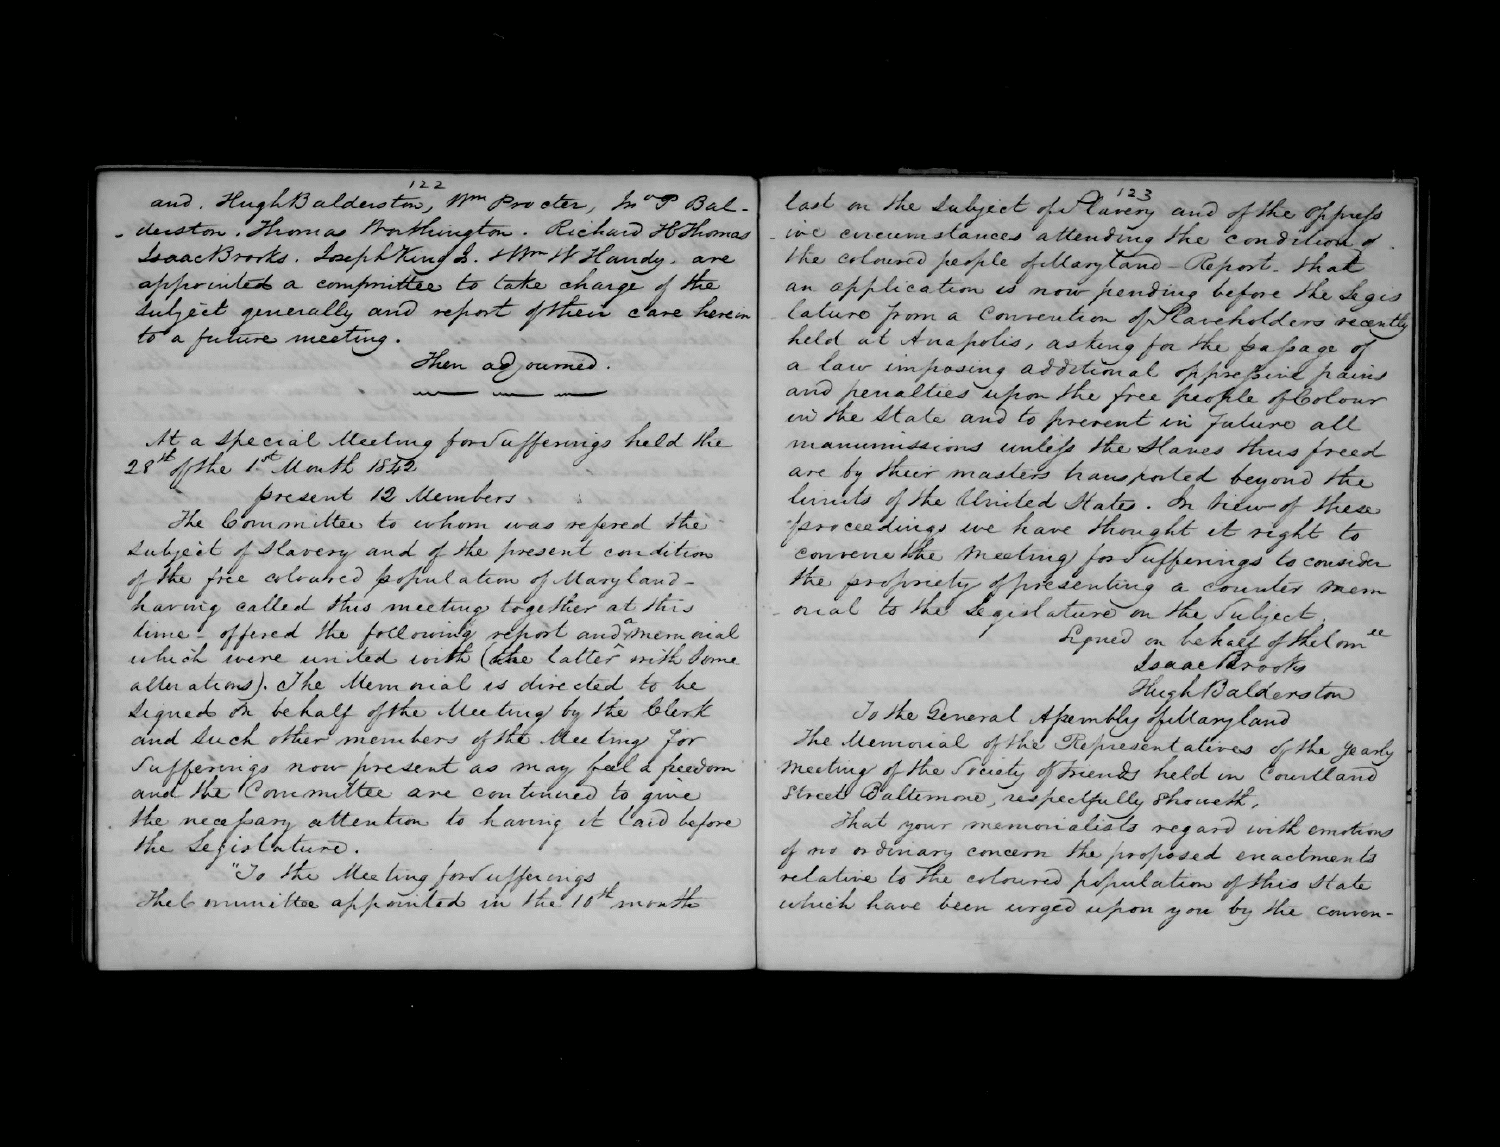 122
and. Hugh Balderston, Wm Procter, Jno P Bal-
derston. Thomas Worthington. Richard H Thomas
Isaac Brooks. Joseph King Jr. & Wm W Handy. are
appointed a committee to take charge of the
subject generally and report of their care herein
to a future meeting.
Then adjourned.
At a special Meeting for Sufferings held the
28th of the 1st Month 1842
present 12 Members
The Committee to whom was refered the
subject of slavery and of the present condition
of the free coloured population of Maryland-
having called this meeting together at this
time- offered the following report and a memorial
which were united with (the latter with some
alterations). The Memorial is directed to be
signed on behalf of the Meeting by the Clerk
and such other members of the Meeting for
Sufferings now present as may feel a freedom
and the Committee are continued to give
the necessary attention to having it laid before
the Legislature.
"To the Meeting for Sufferings
The Committee appointed in the 10th month
123
last on the subject of Slavery and of the oppress
ive circumstances attending the condition of
the coloured people of Maryland - Report - that
an application is now pending before the Legis
lature from a Convention of Slaveholders recently
held at Anapolis, asking for the passage of
a law imposing additional oppressive pains
and penalties upon the free people of Colour
in the State and to prevent in future all
manumissions unless the Slaves thus freed
are by their masters transported beyond the
limits of the United States. In view of these
proceedings we have thought it right to
convene the Meeting for Sufferings to consider
the propriety of presenting a counter mem
orial to the Legislature on the Subject.
Signed on behalf of the Comee
Isaac Brooks
Hugh Balderston
To the General Assembly of Maryland
The Memorial of the Representatives of the Yearly
Meeting of the Society of Friends held in Courtland
Street Baltimore, respectfully Showeth,
That your memorialists regard with emotions
of no ordinary concern the proposed enactments
relative to the coloured population of this State
which have been urged upon you by the conven-